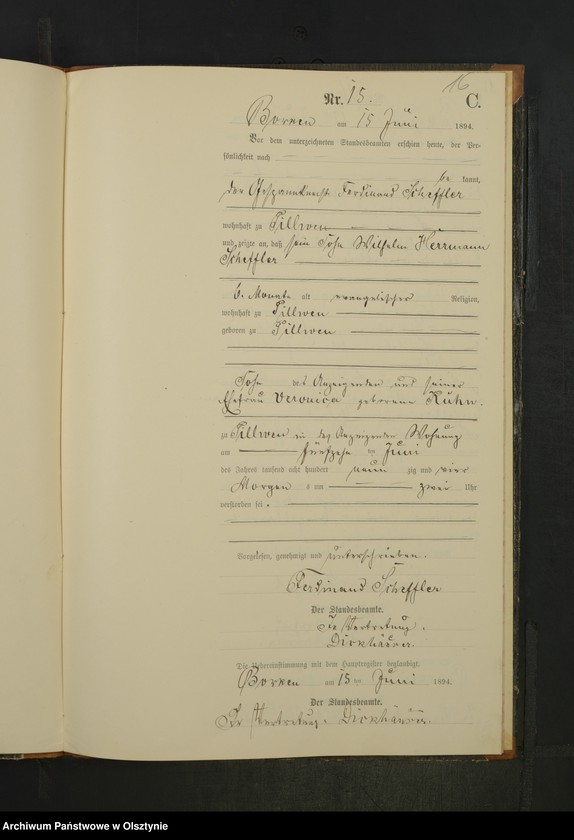 16
Nr. 15. C.
Borken am 15 Juni 1894.
Vor dem unterzeichneten Standesbeamten erschien heute, der Per-
sönlichkeit nach
be kannt,
der Gespannknecht Ferdinand Scheffler
wohnhaft zu Tillwen
und zeigte an, daß sein Sohn Wilhelm Herrmann
Scheffler
6 Monate alt evangelischer Religion,
wohnhaft zu Tillwen
geboren zu Tillwen
Sohn des Anzeigenden und seiner
Ehefrau Veronica geborene Kuhn.
zu Tillwen in des Anzeigenden Wohnung
am fünfzehn ten Juni
des Jahres tausend acht hundert neun zig und vier
Morgen s um zwei Uhr
verstorben sei.
Vorgelesen, genehmigt und unterschrieben.
Ferdinand Scheffler
Der Standesbeamte.
In Vertretung.
Dickhäuser.
Die Uebereinstimmung mit dem Hauptregister beglaubigt.
Borken am 15 ten Juni 1894.
Der Standesbeamte.
In Vertretung. Dickhäuser.
Archiwum Państwowe w Olsztynie